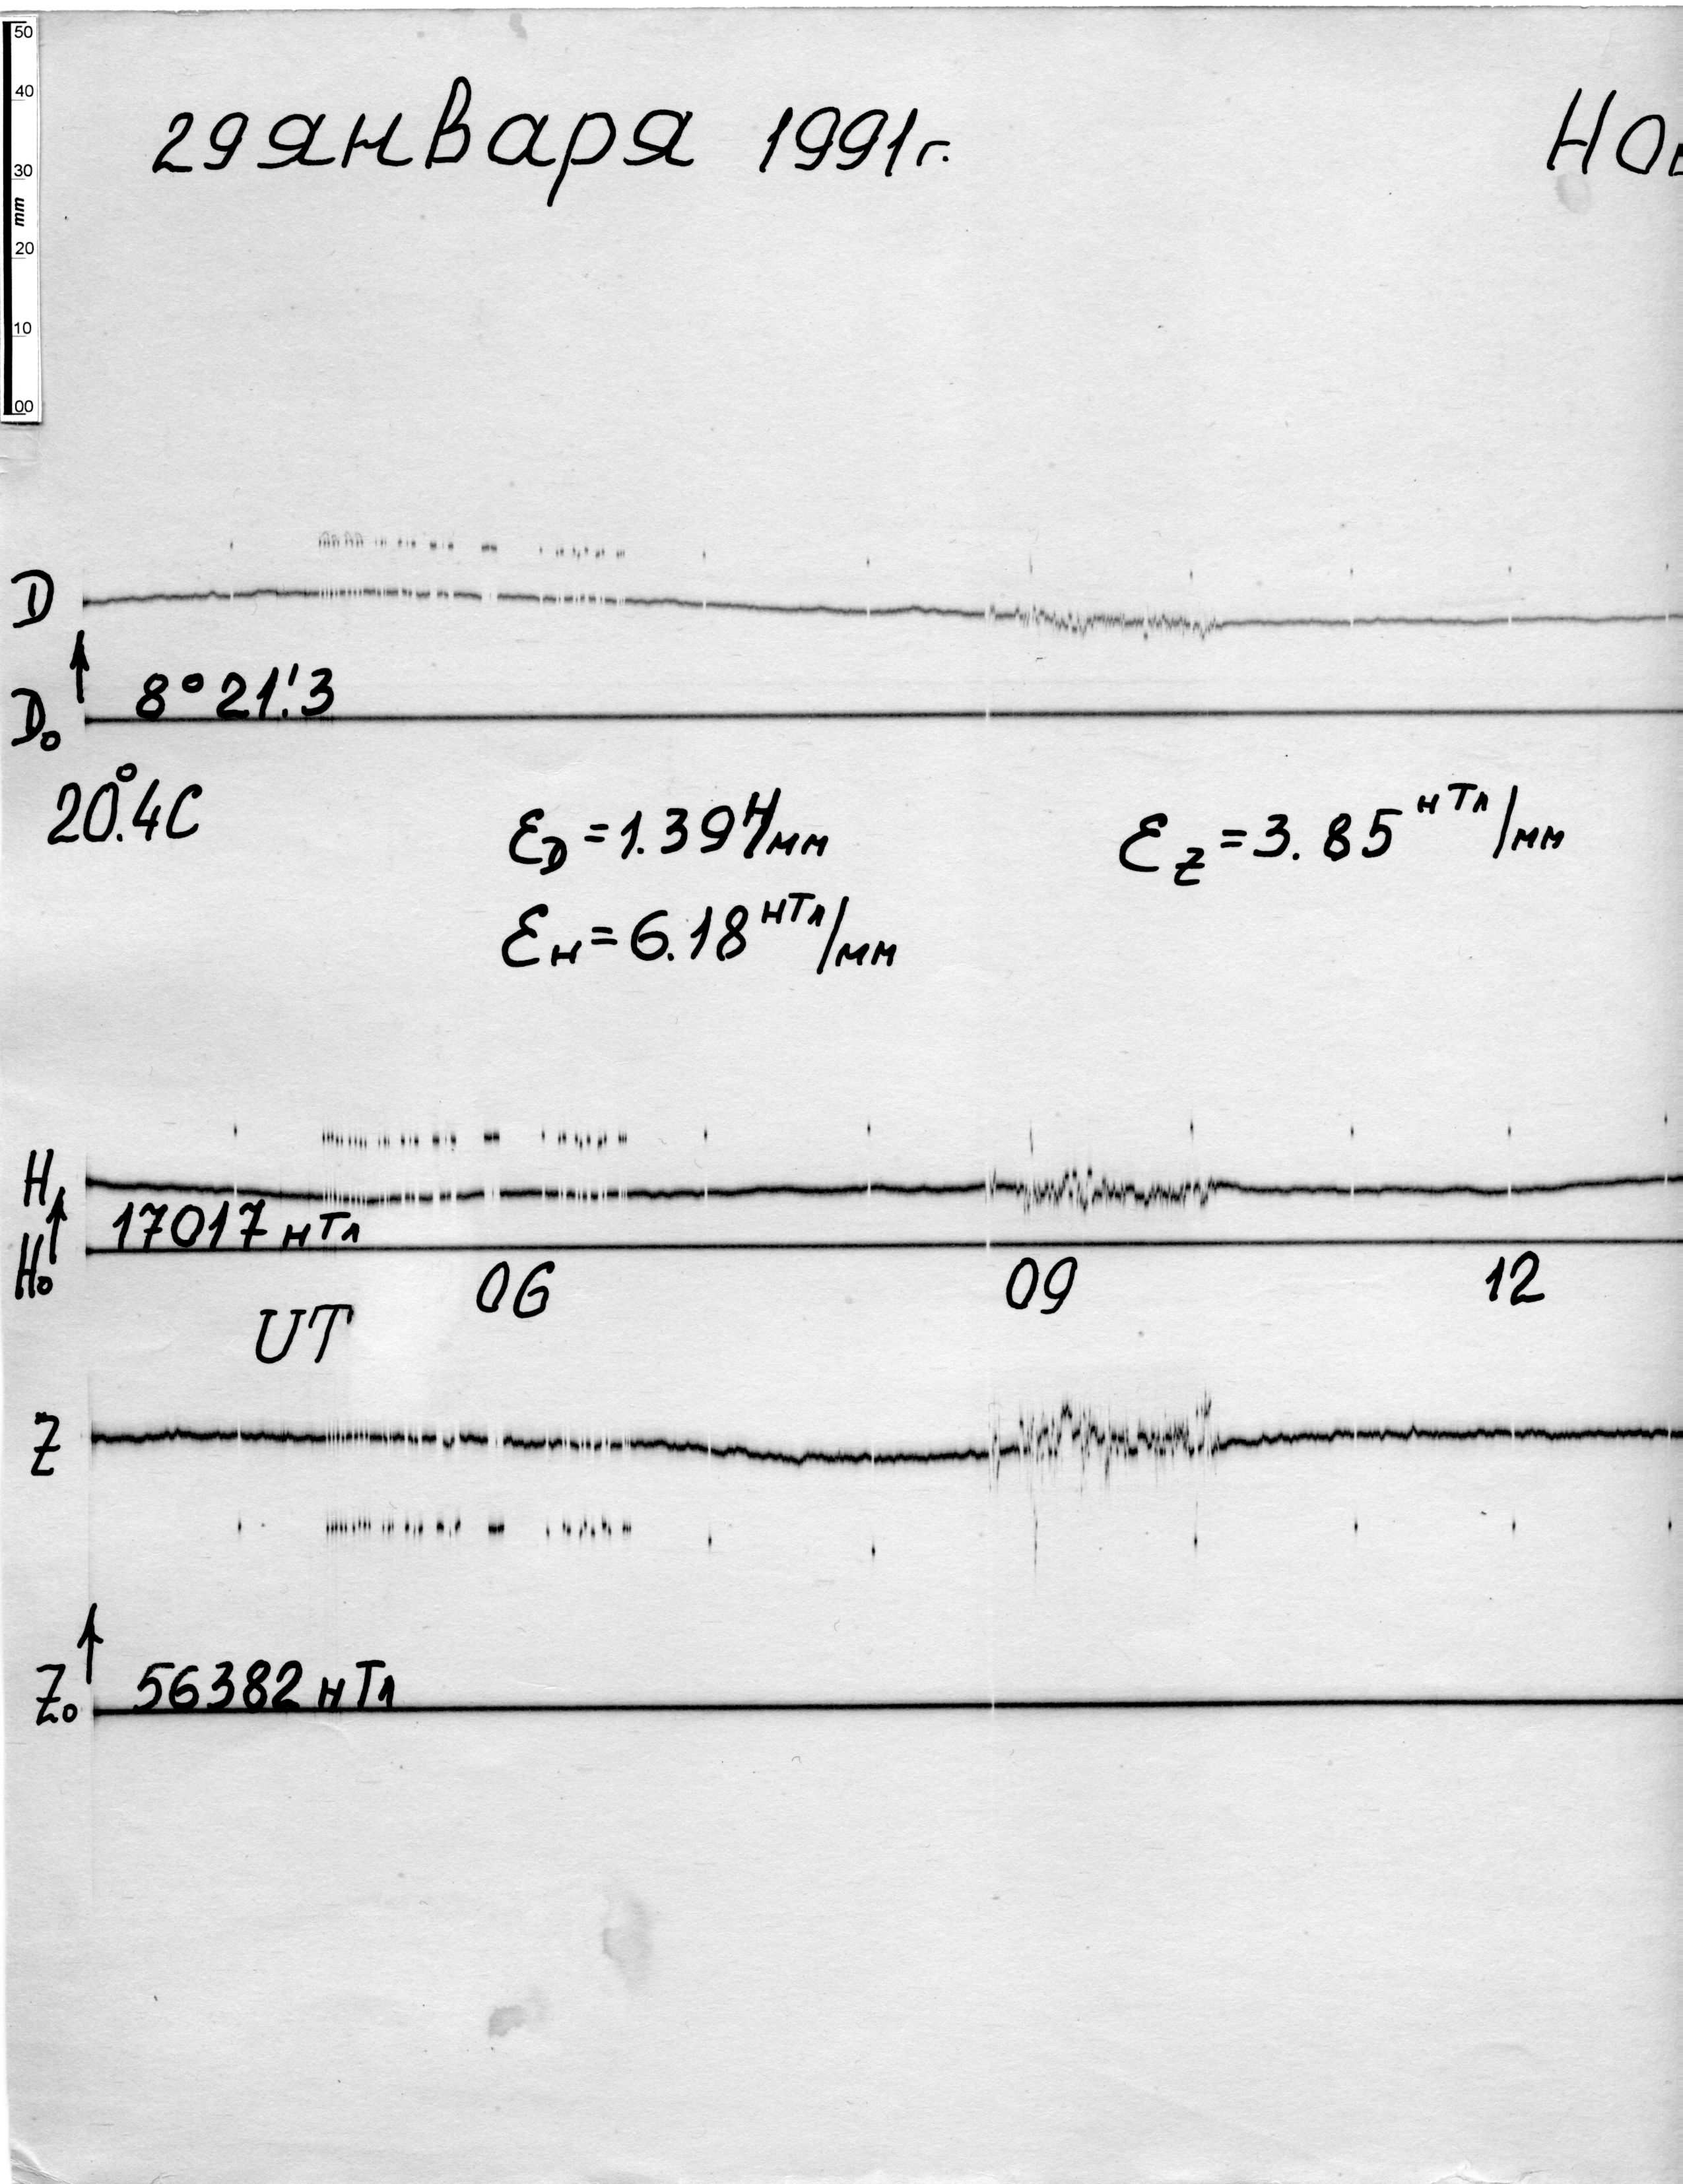 50
40
29 января 1991г.
Но
30
mm
20
10
00
D
8°21!3
D₀
20.°4C
ε_D = 1.39'/мм
ε_Z = 3.85 нТл/мм
ε_H = 6.18 нТл/мм
H
17017 нТл
H₀
06
09
12
UT
Z
Z₀
56382 нТл